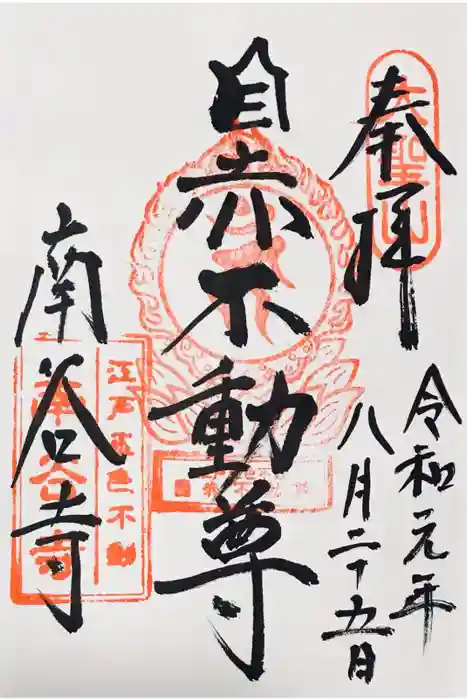 奉拝
令和元年
八月二十五日
目赤不動尊
南谷寺
大聖山
江戸五色不動
南谷寺